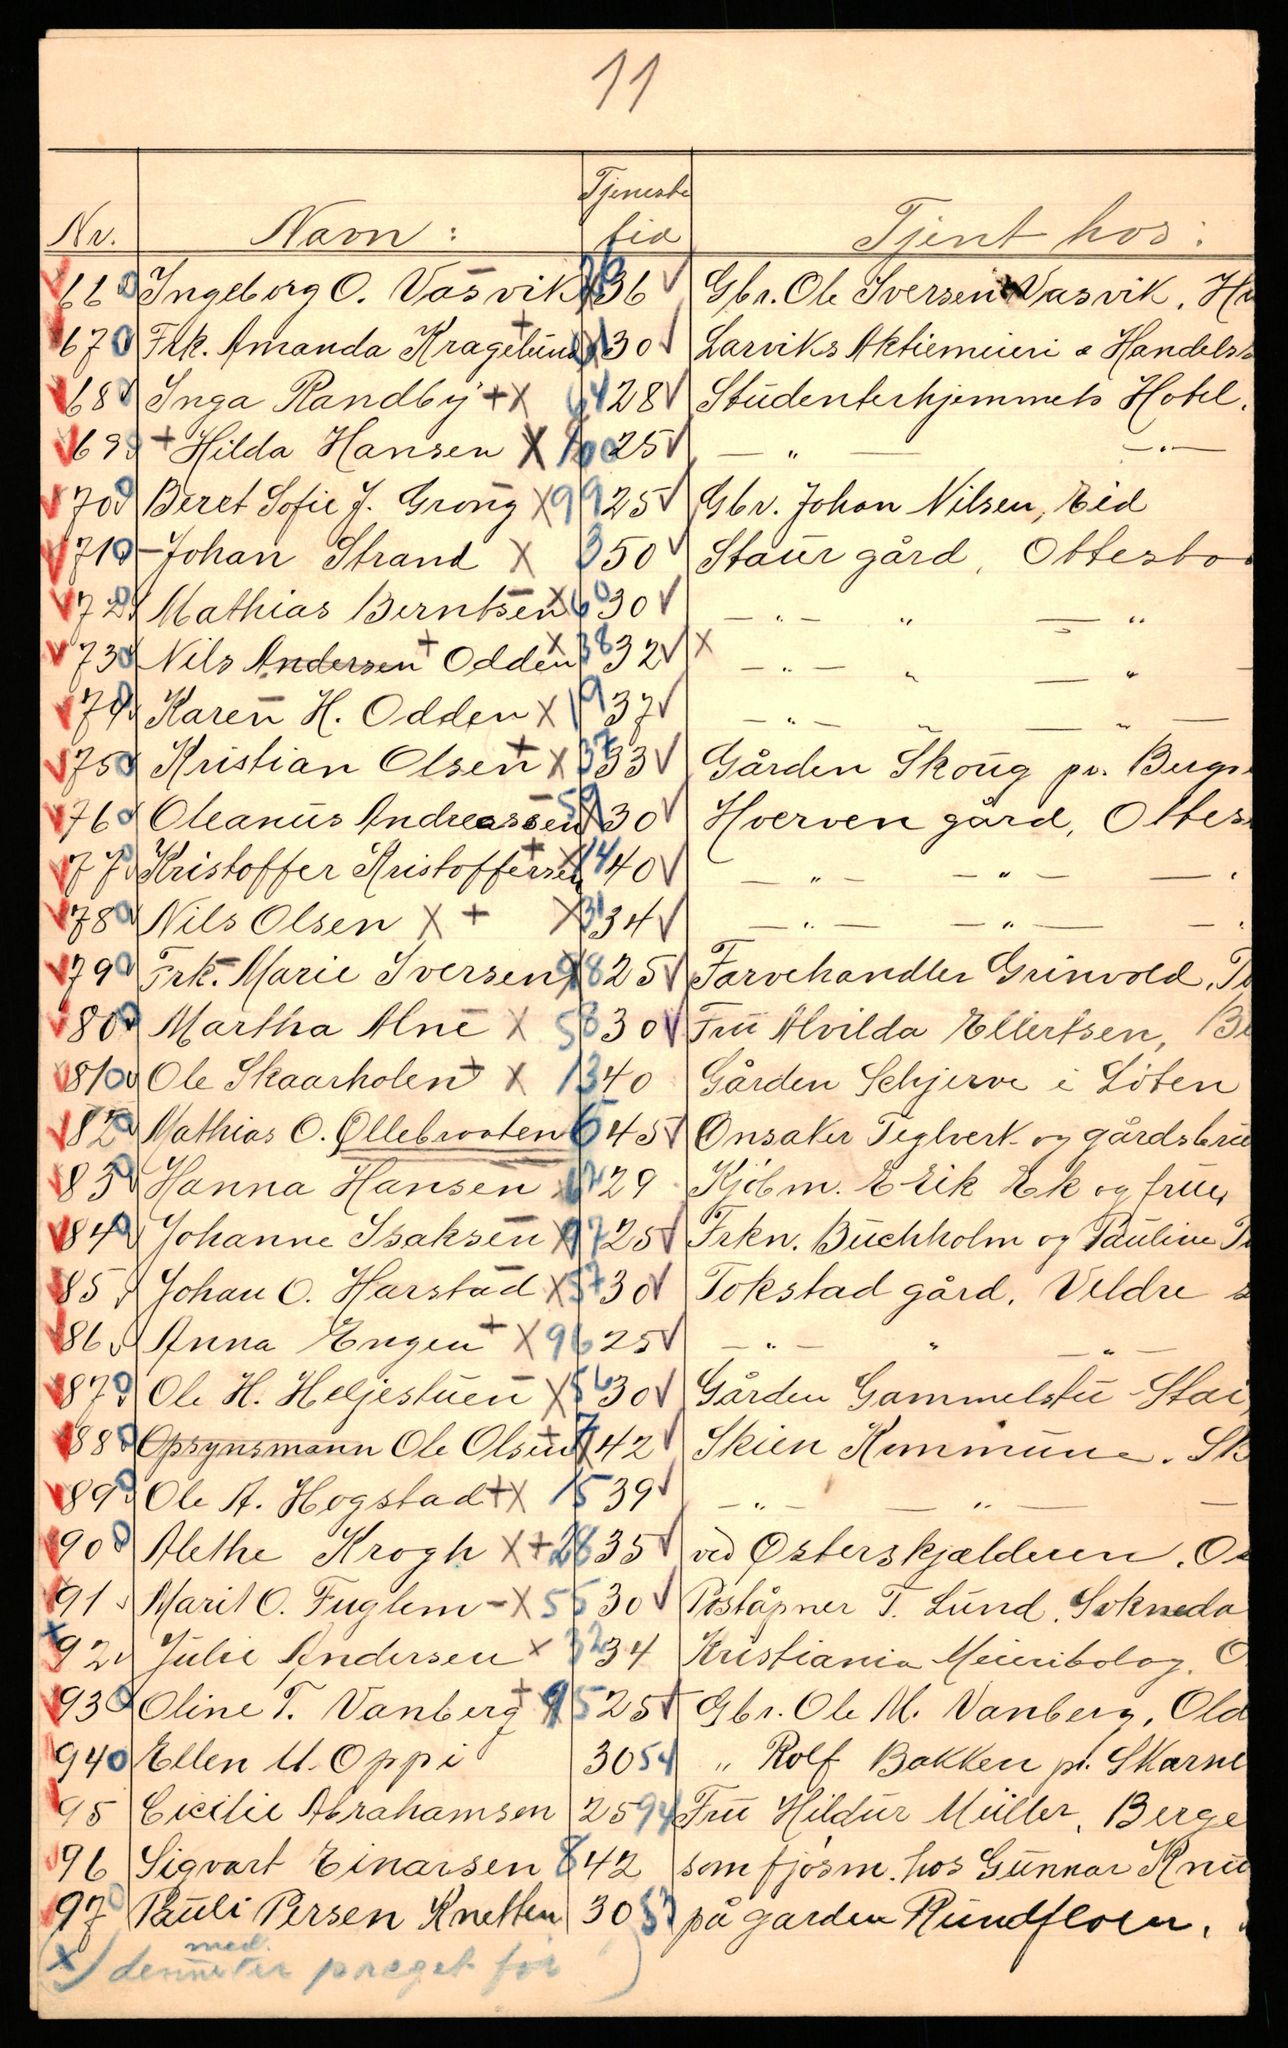 11
Nr. Navn: Tjeneste tid Tjent hos:
66 Ingeborg O. Vasvik 36 Gbr. Ole Iversen Vasvik.
67 Frk. Amanda Kragelund 30 Larviks Aktiemeieri & Handels
68 Inga Randby + X 64 28 Studenterhjemmets Hotel.
69 + Hilda Hansen X 100 25 — " — — " —
70 Beret Sofie J. Grong X 99 25 Gbr. Johan Nilsen, Eid
71 – Johan Strand X 3 50 Staur gård, Ottesta
72 Mathias Berntsen X 60 30 — " — " — "
73 Nils Andersen + Odden X 38 32 X — " — " — "
74 Karen H. Odden X 19 37 — " — " — " —
75 Kristian Olsen + X 37 33 Gården Skoug pr. Bergs
76 Oleanus Andreassen X 59 30 Hverven gård, Ottes
77 Kristoffer Kristoffersen + X 14 40 — " — — " — —
78 Nils Olsen X + X 31 34 — " — — " — —
79 Frk. Marie Iversen X 98 25 Farvehandler Grinvold.
80 Martha Alne X 58 30 Fru Alvilda Ellertsen, Be
81 Ole Skaarholen + X 13 40 Gården Schjerve i Löten
82 Mathias O. Øllebroten 6 45 Onsaker Teglverk- og gårdsbru
83 Hanna Hansen X 29 Kjøbm. Erik Ek og frue,
84 Johanne Isaksen X 97 25 Frkn. Buchholm og Pauline
85 Johan O. Harstad X 57 30 Tokstad gård. Veldre s
86 Anna Engen + X 96 25 — " — " — " —
87 Ole H. Heljestuen X 56 30 Gården Gammelstu - Stai
88 Opsynsmann Ole Olsen + X 7 42 Skien Kommune. Sk
89 Ole A. Hogstad + X 15 39 — " — — " — —
90 Alethe Krogh X + 28 35 ved Østerskjælderen. Os
91 Marit O. Fuglem – X 55 30 Poståpner T. Lund. Sokneda
x 92 Julie Andersen x 32 34 Kristiania Meieribolag. O
93 Oline T. Vanberg + X 95 25 Gbr. Ole M. Vanberg, Old
94 Ellen M. Oppi 30 54 " Rolf Bakken pr. Skarne
95 Cicilie Abrahamsen 25 94 Fru Hildur Müller, Berge
96 Sigvart Einarsen 8 42 som fjøsm. hos Gunnar Knu
97 Pauli Persen Knetten 30 53 på garden Rundfloen.
med.
(x) preget for )